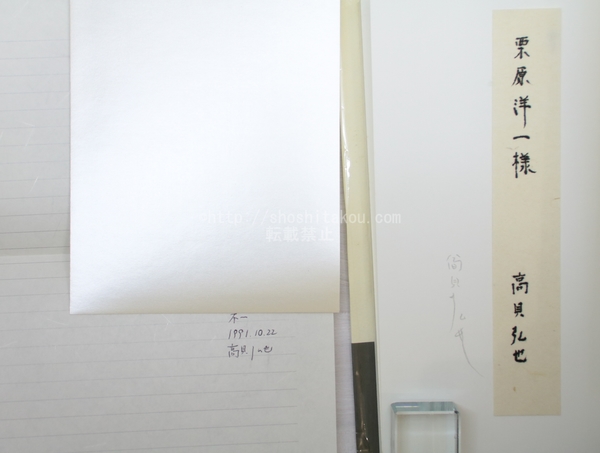 栗原洋一様
高貝弘也
不一
1991.10.22.
高貝弘也
http://shoshitakou.com
転載禁止